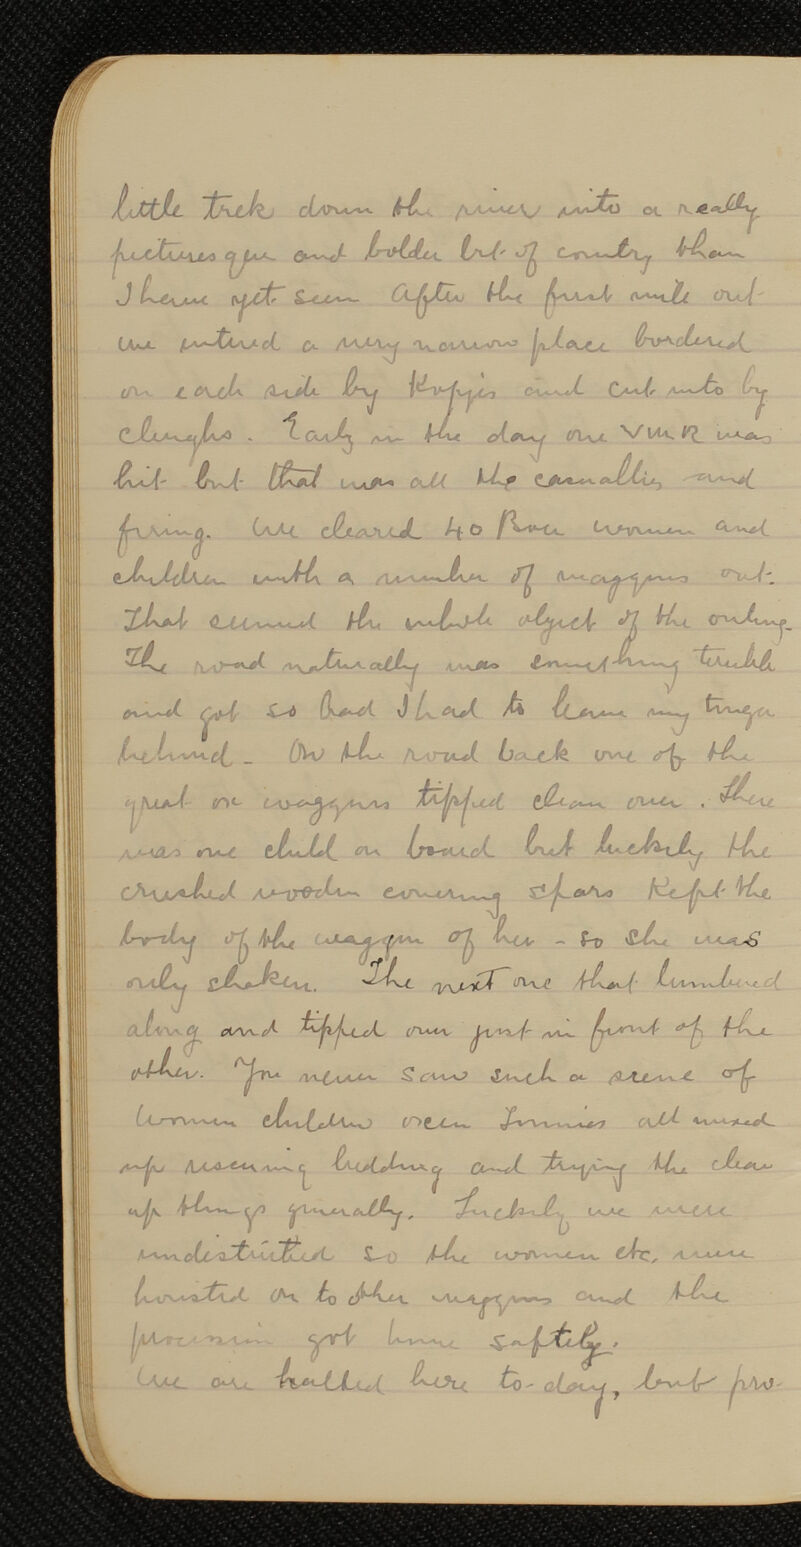 little trek down the river into a really
picturesque and bolder bit of country than
I have yet seen After the first mile out
we entered a very narrow place bordered
on each side by Kopjes and cut into by
clenghs. Early in the day one VMR was
hit but that was all the casualties and
firing. We cleared 40 Boer women and
children with a number of waggons out.
That seemed the whole object of the outing.
The road naturally was something terrible
and got so bad I had to leave my tonga
behind - On the road back one of the
great ox waggons tipped clean over. There
was one child on board but luckily the
crushed wooden covering spars Kept the
body of the waggon of her - so she was
only shaken. The next one that lumbered
along and tipped over just in front of the
other. You never saw such a scene of
women children oxen Tommies all mixed
up rescuing bedding and trying the clear
up things generally. Luckily we were
undisturbed so the women etc. were
hoisted on to other waggons and the
procession got home saftely.
We are halted here to-day, but pro-